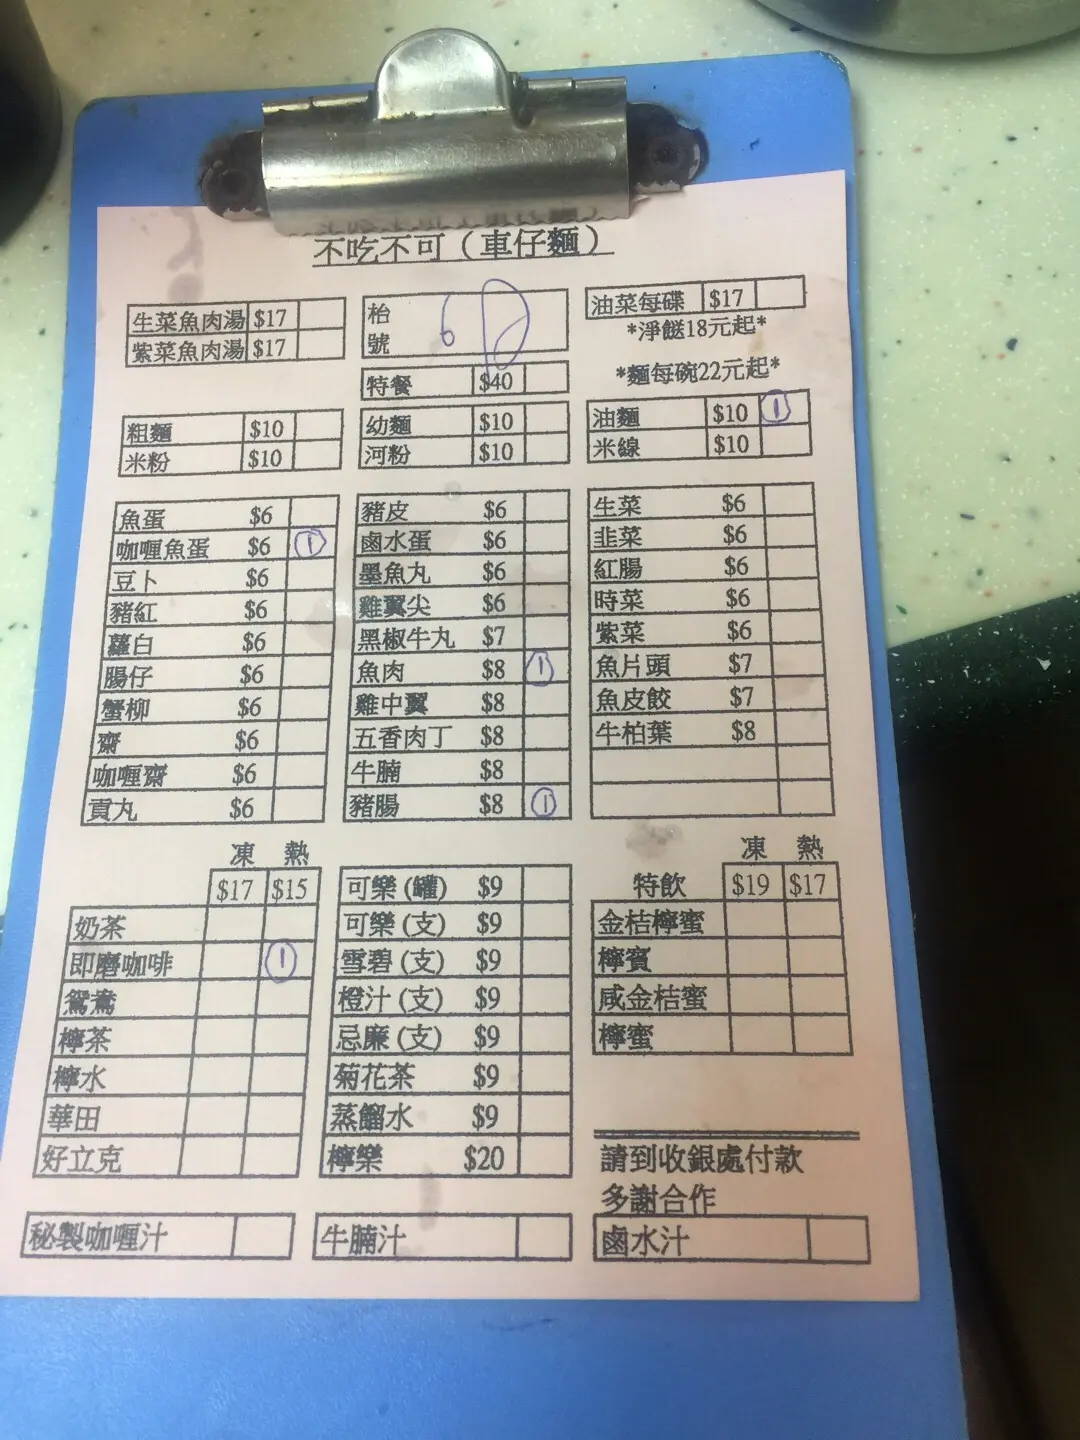 不吃不可（車仔麵）
生菜魚肉湯 $17
紫菜魚肉湯 $17
枱號 6
油菜每碟 $17
*淨餸18元起*
*麵每碗22元起*
特餐 $40
粗麵 $10
米粉 $10
幼麵 $10
河粉 $10
油麵 $10 ①
米線 $10
魚蛋 $6
咖喱魚蛋 $6 ①
豆卜 $6
豬紅 $6
蘿白 $6
腸仔 $6
蟹柳 $6
齋 $6
咖喱齋 $6
貢丸 $6
豬皮 $6
鹵水蛋 $6
墨魚丸 $6
雞翼尖 $6
黑椒牛丸 $7
魚肉 $8 ①
雞中翼 $8
五香肉丁 $8
牛腩 $8
豬腸 $8 ①
生菜 $6
韭菜 $6
紅腸 $6
時菜 $6
紫菜 $6
魚片頭 $7
魚皮餃 $7
牛柏葉 $8
凍 熱
$17 $15
奶茶
即磨咖啡 ①
鴛鴦
檸茶
檸水
華田
好立克
可樂 (罐) $9
可樂 (支) $9
雪碧 (支) $9
橙汁 (支) $9
忌廉 (支) $9
菊花茶 $9
蒸餾水 $9
檸樂 $20
凍 熱
特飲 $19 $17
金桔檸蜜
檸賓
咸金桔蜜
檸蜜
請到收銀處付款
多謝合作
秘製咖喱汁
牛腩汁
鹵水汁